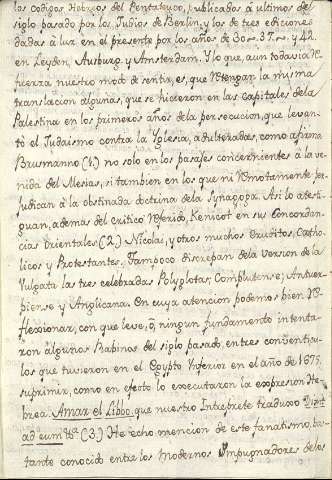 los Codigos Hebreos del Pentateuco, publicados á ultimos del
siglo pasado por los Judios de Berlin, y los de tres ediciones
dadas á luz en el presente por los años de 30 = 37 = y 42.
en Leyden, Ausburg, y Amsterdam. Y lo que aun todavia re-
fuerza nuestro modo de sentir, es, que retengan la misma
translacion algunas, que se hicieron en las capitales dela
Palestina en los primeros años de la persecucion, que levan-
tó el Judaismo contra la Yglesia, adulteradas, como afirma
Brusmanno (1.) no solo en los pasajes concernientes á la ve-
nida del Mesias, si tambien en los que ni remotamente per-
judican á la obstinada doctrina dela Synagoga. Asi lo atesti-
guan, ademas del critico referido, Kenicot en su Concordan-
cias Orientales (2.) Nicolai, y otros muchos Eruditos, Catho-
licos y Protestantes. Tampoco discrepan dela version dela
Vulgata las tres celebradas Polyplotas, Complutense, Antuer-
piense y Anglicana. En cuya atencion podemos bien re-
flexionar, con que leve, ó, ningun fundamento intenta-
ron algunos Rabinos del siglo pasado, en tres conventicu-
los que tuvieron en el Egypto Inferior en el año de 1675.
suprimir, como en efecto lo executaron la expresion He-
brea Amar el Libbo, que nuestro Interprete traduxo Dixit
ad eum &a (3.) He echo mencion de este fanatismo, bas-
tante conocido entre los modernos Impugnadores de los